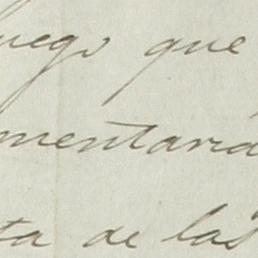 luego que
mentaria
ta de las